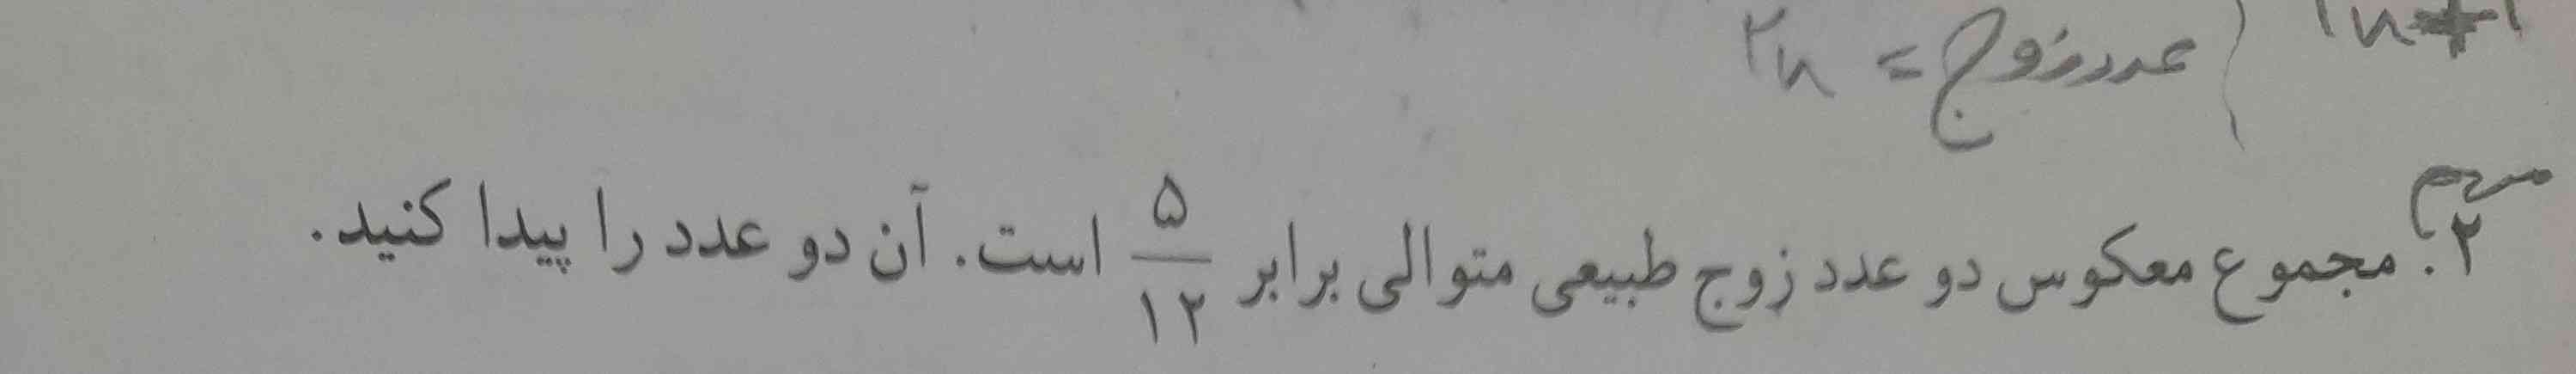 عدد زوج = ۲n
مهم
۲. مجموع معکوس دو عدد زوج طبیعی متوالی برابر ۵/۱۲ است. آن دو عدد را پیدا کنید.